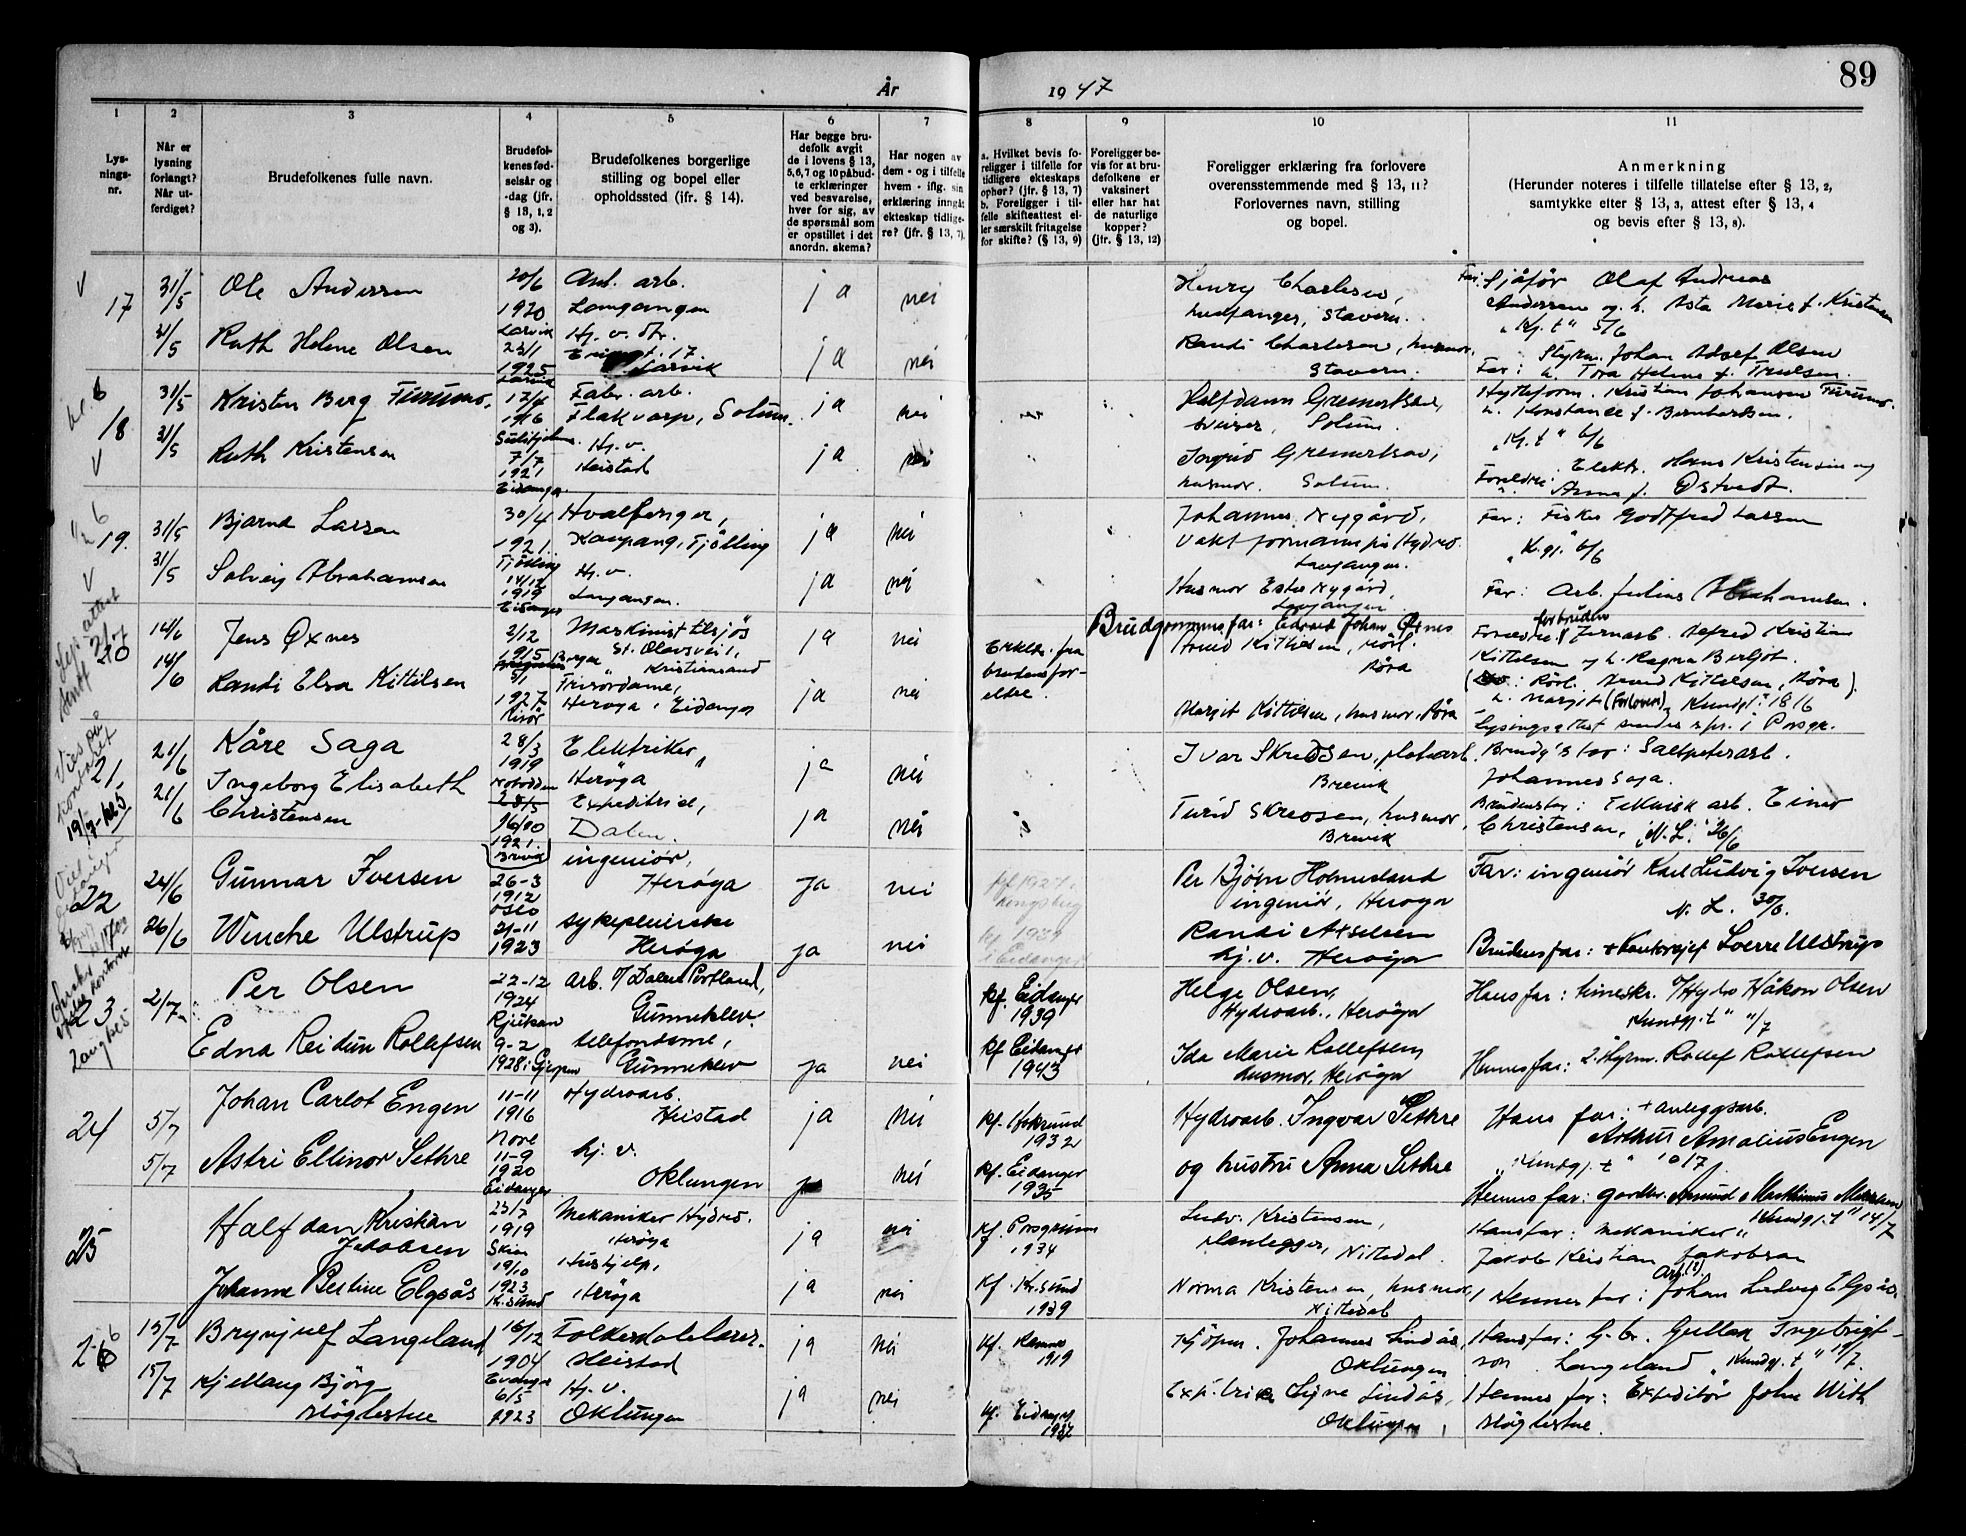 89
År
19 47
1
2
3
4
5
6
7
8
9
10
11
Lys-
nings-
nr.
Når er
lysning
forlangt?
Når ut-
ferdiget?
Brudefolkenes fulle navn.
Brudefol-
kenes fød-
selsår og
-dag (jfr.
§ 13, 1, 2
og 3).
Brudefolkenes borgerlige
stilling og bopel eller
opholdssted (ifr. § 14).
Har begge bru-
defolk avgit
de i lovens § 13,
5,6,7 og 10 påbud-
te erklæringer
ved besvarelse,
hver for sig, av
de spørsmål som
er opstillet i det
anordn. skema?
Har nogen av
dem - og i tilfelle
hvem - iflg. sin
erklæring inngått
ekteskap tidlige-
re? (jfr. § 13, 7).
a. Hvilket bevis fo-
religger i tilfelle for
tidligere ekteskaps
ophør? (jfr. § 13, 7)
b. Foreligger i til-
felle skifteattest el-
ler særskilt fritagelse
for skifte? (§ 13, 9)
Foreligger be-
vis for at bru-
defolkene er
vaksinert
eller har hat
de naturlige
kopper?
(jfr. § 13, 12)
Foreligger erklæring fra forlovere
overensstemmende med § 13, 11?
Forlovernes navn, stilling
og bopel.
Anmerkning
(Herunder noteres i tilfelle tillatelse efter § 13, 2,
samtykke efter § 13, 3, attest efter § 13, 4
og bevis efter § 13, 8).
17
31/5
Ole Andersen
20/6
1920
Larvik
Anl. arb.
Langangen
ja
nei
Henry Charlesen,
hvalfanger, Stavern.
Far: Sjåfør Olaf Andreas
Andersen og h. Asta Marie f. Kristensen
"Kj. t" 5/6
31/5
Ruth Helene Olsen
23/1
1925
Larvik
Hj. v. str.
17.
Larvik
ja
nei
Randi Charlesen, husmor,
Stavern.
Far: Styrm. Johan Adolf Olsen
h. Tora Helene f. Truelsen.
18
31/5
Kristen Berg Furumo.
17/8
1916
Sulitjelma
Fabr. arb.
Flakvarp, Solum.
ja
nei
Halfdann Gremertsen,
Solum.
Hytteform. Kristian Johansen Furumo.
h. Konstanse f. Bernhardsen.
"Kj. t" 6/6
31/5
Ruth Kristensen
7/7
1921
Eidanger
Hj. v.
Heistad
ja
nei
Ingrid Gremertsen,
husmor. Solum.
Foreldre: Elektr. Hans Kristensen og
h. Anna f. Østvedt.
19.
31/5
Bjarne Larsen
30/4
1921.
Tjølling
Hvalfanger,
Kaupang, Tjølling
ja
nei
Johannes Nygård,
Vaktformann på Hydro.
Langangen.
Far: Fisker Godtfred Larsen
"K. gj." 6/6
31/5
Solveig Abrahamsen
14/12
1919
Eidanger
Hj. v.
Langangen.
ja
nei
Husmor Ester Nygård,
Langangen
Far: Arb. Julius Abrahamsen.
20
14/6
Jens Øxnes
2/12
1915
Maskinist tilsjøs
St. Olavsvei 1,
Kristiansund
ja
nei
Erklær. fra
brudens for-
eldre.
Brudgommens far: Edvard Johan Øxnes
Arvid Kittilsen, rørl.
Røra
Foreldre: Jernarb. Alfred Kristian
Kittelsen og h. Ragna Berljot.
14/6
Randi Elsa Kittilsen
5/1
1927
Risør
Frisørdame,
Herøya, Eidanger
ja
nei
Margit Kittilsen, husmor, Røra
Rørl. Arvid Kittelsen, Røra).
h. Margit (Forlover). Kundgj. t. 18/6
Lysingsattest sendes spr. i Porsgr.
21.
21/6
Kåre Saga
28/3
1919
Notodden
Elektriker,
Herøya
ja
nei
Ivar Skredsen, platearb.
Brevik
Brudg's far: Saltpeterarb.
Johannes Saga.
21/6
Ingeborg Elisabeth
Christensen
16/10
1921.
(Brevik)
Expeditrise,
Dalen.
ja
nei
Turid Skreosen, husmor,
Brevik
Brudensfar: Teknisk arb. Einar
Christensen, "N. L." 26/6
22
24/6
Gunnar Iversen
26-3
1912
Oslo
ingeniør,
Herøya
ja
nei
kf. 1927 i
Kongsberg
Per Bjørn Holmesland
ingeniør, Herøya
Far: ingeniør Karl Ludvig Iversen
N. L. 30/6.
26/6
Wenche Ulstrup
21-11
1923
sykepleierske
Herøya
ja
nei
kf. 1939
i Eidanger
Randi Axelsen
hj. v. Herøya
Brudensfar: + Kontorsjef Sverre Ulstrup
23
2/7
Per Olsen
22-12
1924
Rjukan
arb. v/ Dalen Portland,
Gunneklev.
kf. Eidanger
1939
Helge Olsen,
Hydroarb., Herøya
Hans far: timeskr. v/Hydro Håkon Olsen
"Kundgj. t" 11/7
Edna Reidun Rollefsen
9-2
1928 i Gjerpen
telefondame,
Gunneklev
ja
nei
kf Eidanger
1943
Ida Marie Rollefsen
husmor, Herøya
Hennes far: 2. styrm. Rollef Rollefsen
24
5/7
Johan Carlot Engen
11-11
1916
Nore
Hydroarb.
Heistad
ja
nei
kf. Hokksund
1932
Hydroarb. Ingvar Sethre
Hans far: + anleggsarb.
Arthur Amalius Engen
"Kundgj. t" 10/7.
5/7
Astri Ellinor Sethre
11-9
1920
Eidanger
hj. v.
Oklungen
ja
nei
kf. Eidanger
1935
og hustru Anna Sethre
Hennes far: gardbr. Amund Mathinus
"Kundgj. t" 14/7
25
Halfdan Kristian
Jakobsen
23/7
1919
Skien
Mekaniker Hydro.
Herøya
ja
nei
Kf. Porsgrunn
1934
Ludv. Kristensen,
rørlegger, Nittedal.
Hans far: mekaniker
Jakob Kristian Jakobsen
Johanne Bertine Elgsås
19/10
1923
Kr.sund
Hushjelp,
Herøya
ja
nei
Kf. Kr.sund
1939
Norma Kristensen, husmor,
Nittedal
Hennes far: Arb.(?) Johan Ludvig Elgsås.
26
15/7
Brynjulf Langeland
16/12
1904
Evanger
Folkeskolelærer.
Heistad
ja
nei
Kf.
1919
Kjøpm. Johannes Lindås,
Oklungen
Hans far: G.br. Gullak Ingebrigt-
son Langeland "Kundgj. t" 19/7.
15/7
Kjellaug Bjørg
Høglestue
6/5
1923
Hj. v.
Oklungen
ja
nei
Kf. Eidanger
1937
Exp.trise Signe Lindås,
Oklungen
Hennes far: Expeditør John With
Høglestue.